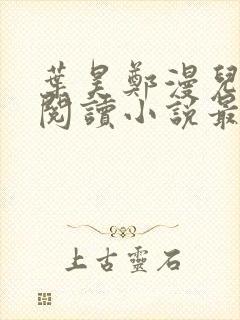 葉昊鄭漫兒
閱讀小說最
上古靈石